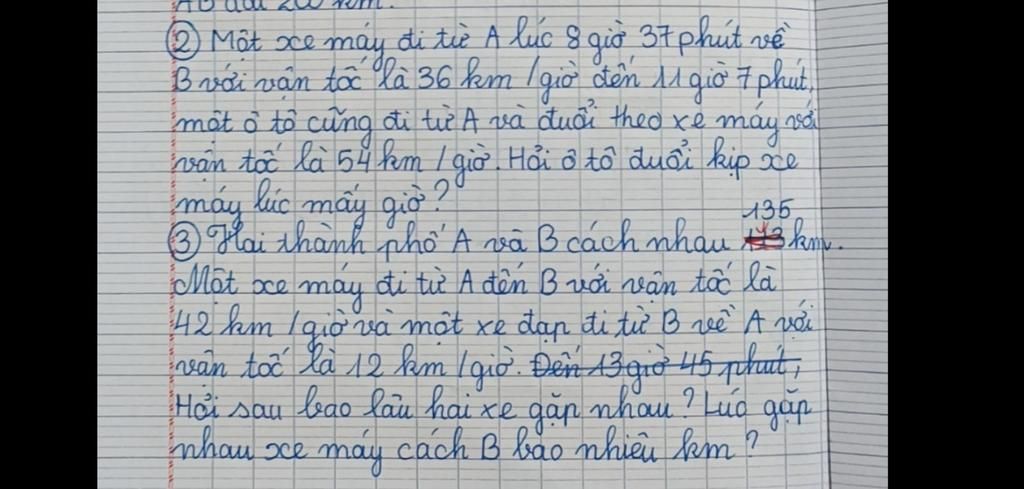 AB dài 200 km.
② Một xe máy đi từ A lúc 8 giờ 37 phút về
B với vận tốc là 36 km /giờ đến 11 giờ 7 phút,
một ô tô cũng đi từ A và đuổi theo xe máy với
vận tốc là 54 km /giờ. Hỏi ô tô đuổi kịp xe
máy lúc mấy giờ?
135
③ Hai thành phố A và B cách nhau km.
Một xe máy đi từ A đến B với vận tốc là
42 km /giờ và một xe đạp đi từ B về A với
vận tốc là 12 km /giờ. Đến 13 giờ 45 phút,
Hỏi sau bao lâu hai xe gặp nhau? Lúc gặp
nhau xe máy cách B bao nhiêu km?